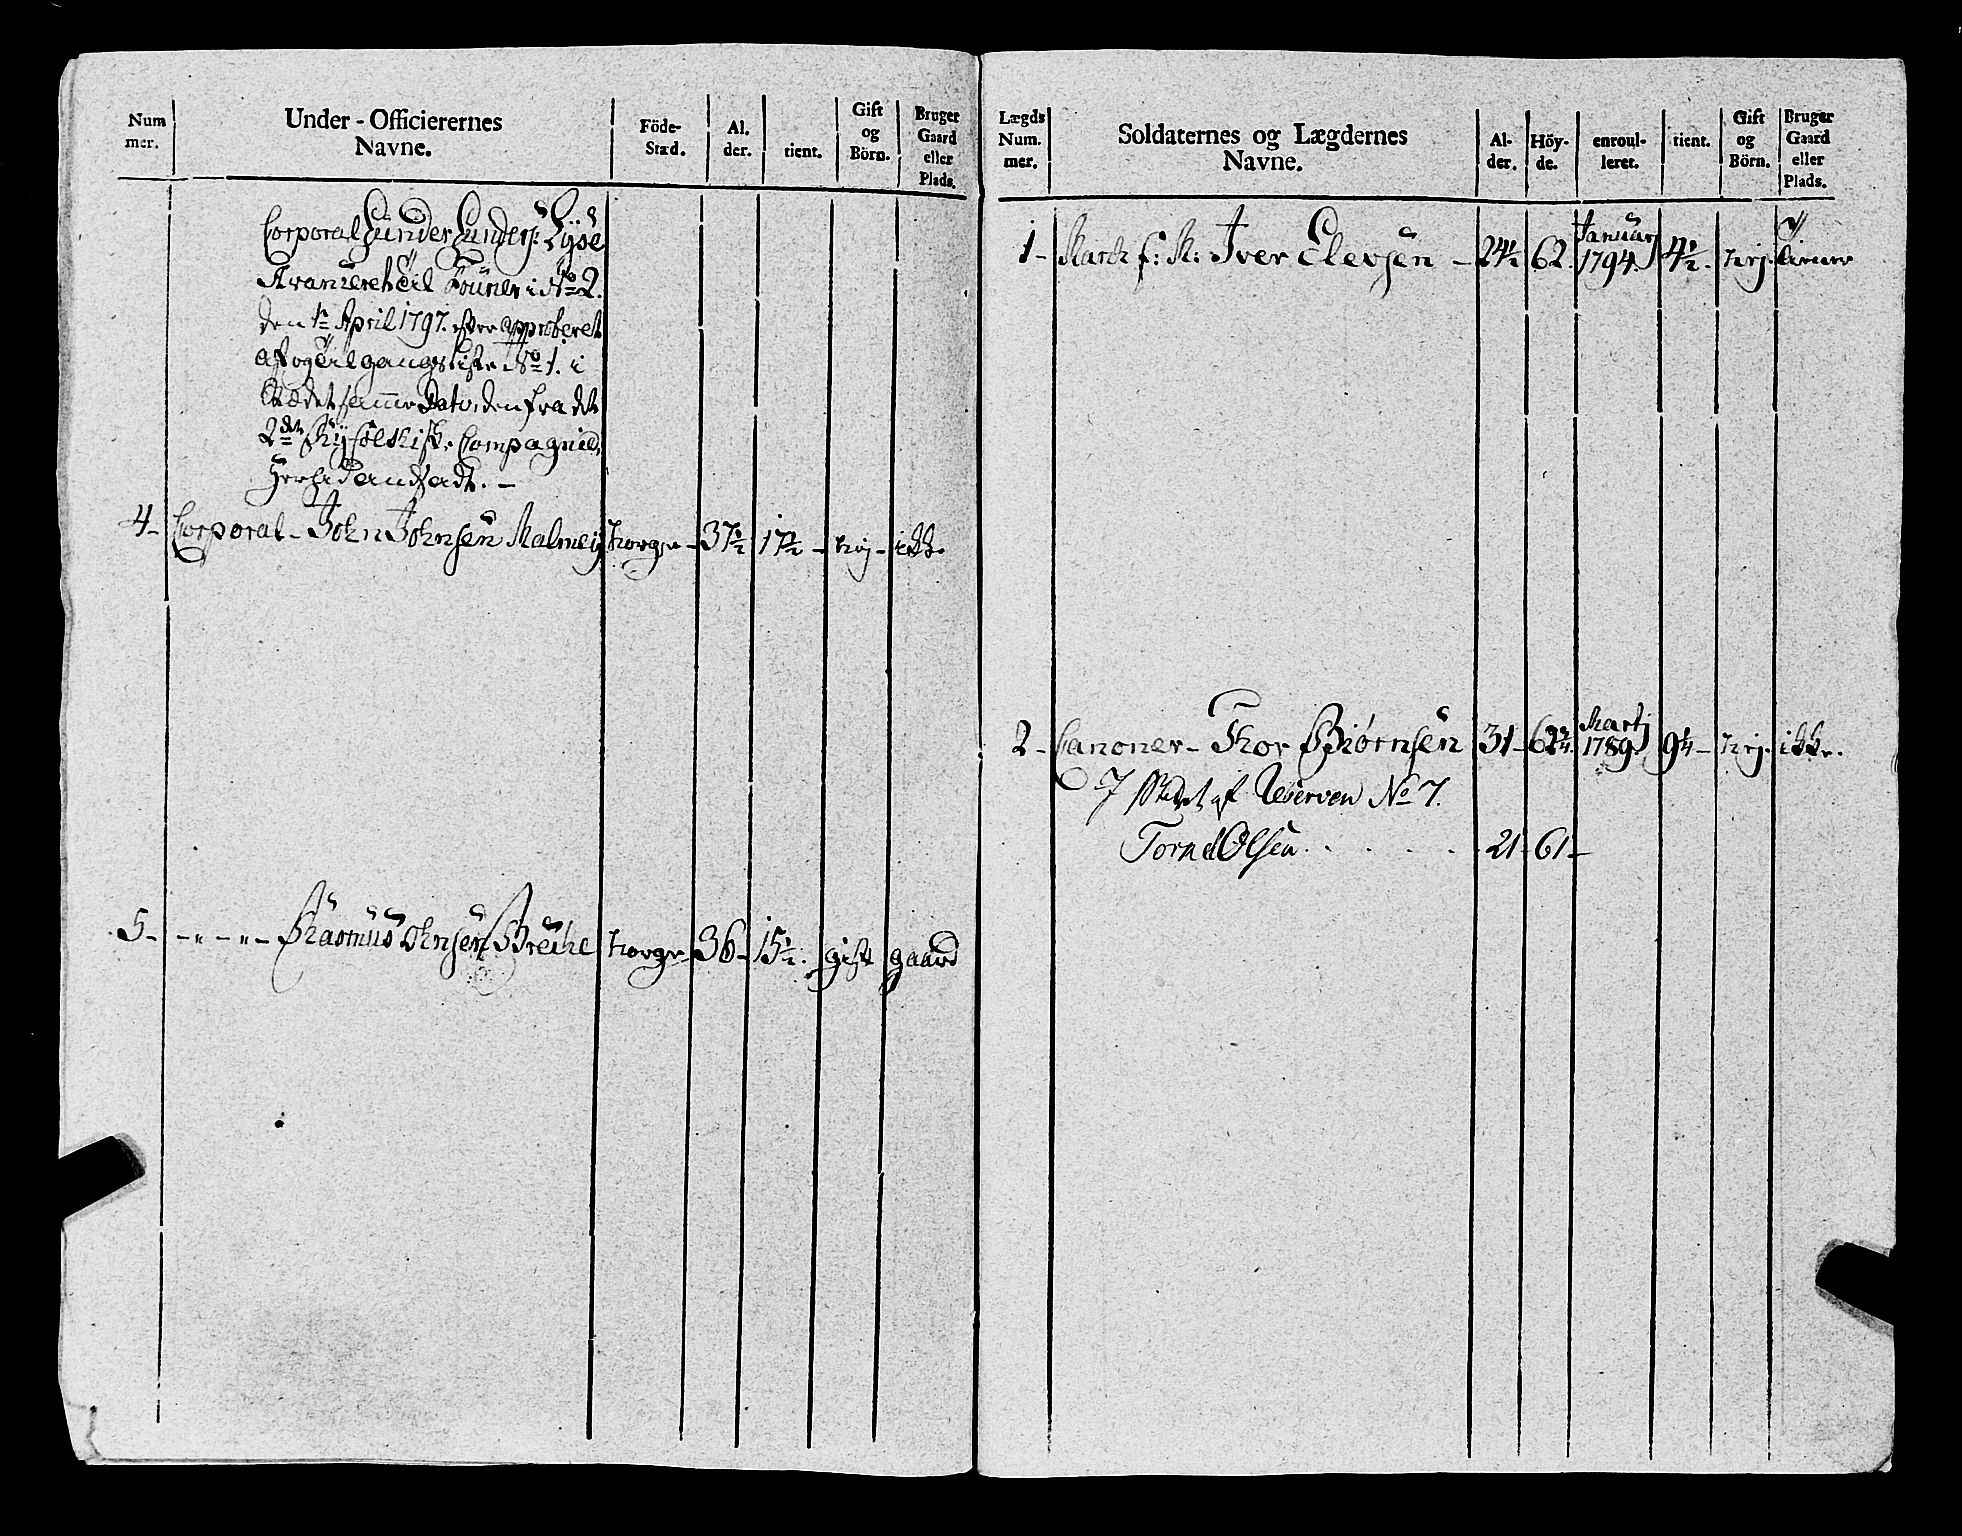 Num
mer.
Under-Officierernes
Navne.
Föde-
Stæd.
Al.
der.
tient.
Gift
og
Börn.
Bruger
Gaard
eller
Plads.
Corporal Gunder Gunders: Lyse
Avanceret til Fourer i No 2.
den 1te April 1797. efter approberet
af og tilgangs Liste No 1. i
Stædet samme Dato, den fra det
2det Compagnie
4- Corporal- John Johnsen Malmeij Norge- 37½ 17½- Nej- ikke.
5- -"-"- Rasmus Johnsen Norge- 36- 15½. gift gaard
Lægds
Num.
mer.
Soldaternes og Lægdernes
Navne.
Al-
der.
Höy-
de.
enroul-
leret.
tient.
Gift
og
Börn.
Bruger
Gaard
eller
Plads.
1- Iver Elevsen- 24½ 62. Januarj 1794. 4½. Nej. tiener
2- Canoner- Thor Biørnsen 31- 62¾. Martj 1789. 9¼- Nej. ikke.
I Stædet af Reserven No 7.
Olsen . . . . . 21- 61-